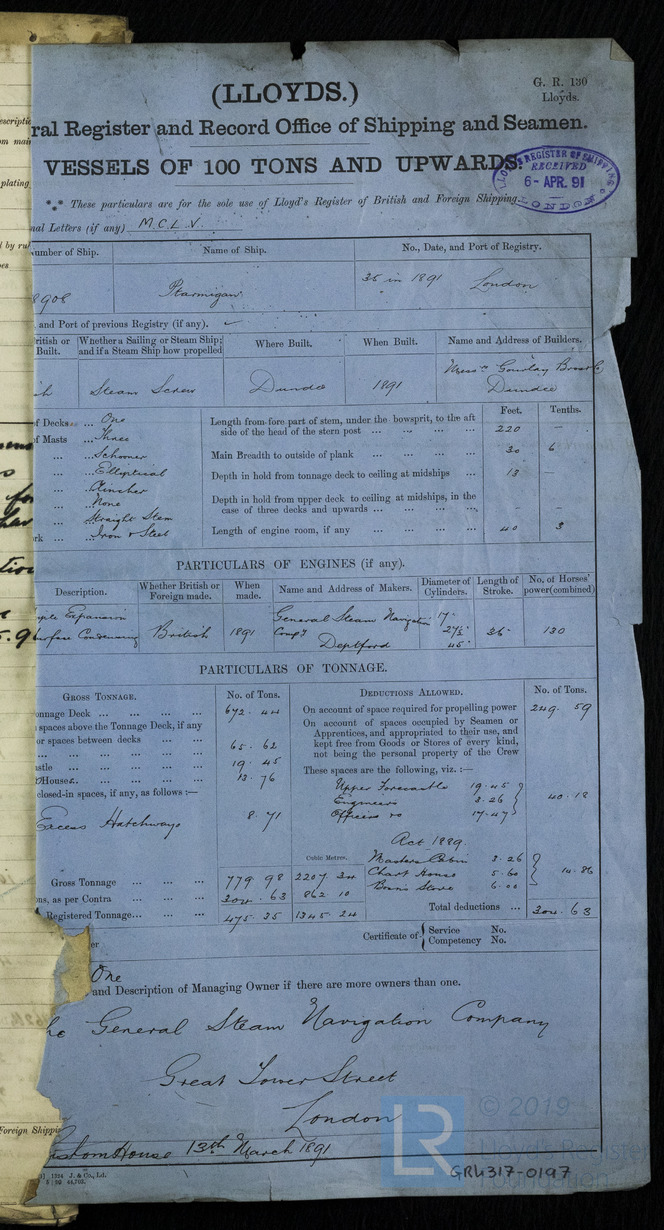 (LLOYDS.)
G. R. 130
Lloyds.
ral Register and Record Office of Shipping and Seamen.
VESSELS OF 100 TONS AND UPWARDS.
LLOYD'S REGISTER OF SHIPPING
RECEIVED
6- APR. 91
LONDON
These particulars are for the sole use of Lloyd's Register of British and Foreign Shipping.
nal Letters (if any) M.C.L.V.
umber of Ship. Name of Ship. No., Date, and Port of Registry.
8908 Ptarmigan 36 in 1891 London
and Port of previous Registry (if any).
British or Built. Whether a Sailing or Steam Ship; and if a Steam Ship how propelled Where Built. When Built. Name and Address of Builders.
Steam Screw Dundee 1891 Messrs Gourlay Bros & Co Dundee
of Decks ... One
of Masts ... Three
... Schooner
... Elliptical
... Clincher
... None
... Straight Stem
rk ... Iron & Steel
Feet. Tenths.
Length from fore part of stem, under the bowsprit, to the aft
side of the head of the stern post ... 220 –
Main Breadth to outside of plank ... 30 6
Depth in hold from tonnage deck to ceiling at midships ... 13
Depth in hold from upper deck to ceiling at midships, in the
case of three decks and upwards ... –
Length of engine room, if any ... 40 3
PARTICULARS OF ENGINES (if any).
Description. Whether British or Foreign made. When made. Name and Address of Makers. Diameter of Cylinders. Length of Stroke. No. of Horses' power (combined)
Expansion General Steam Navigation 17
Surface Condensing British 1891 Compy 27½ 36 130
Deptford 45
PARTICULARS OF TONNAGE.
GROSS TONNAGE. No. of Tons.
onnage Deck ... 672.44
spaces above the Tonnage Deck, if any
or spaces between decks ... 65.62
stle ... 19.45
Houses ... 13.76
closed-in spaces, if any, as follows :—
Excess Hatchways 8.71
Cubic Metres.
Gross Tonnage ... 779.98 2207.34
ns, as per Contra ... 304.63 862.10
Registered Tonnage ... 475.35 1345.24
DEDUCTIONS ALLOWED. No. of Tons.
On account of space required for propelling power 249.59
On account of spaces occupied by Seamen or
Apprentices, and appropriated to their use, and
kept free from Goods or Stores of every kind,
not being the personal property of the Crew
These spaces are the following, viz. :—
Upper Forecastle 19.45
Engineers 3.26 40.18
Officers do 17.47
Act 1889.
Masters Cabin 3.26
Chart House 5.60 14.86
Bosns Store 6.00
Total deductions ... 304.63
Certificate of Service No.
Competency No.
One
and Description of Managing Owner if there are more owners than one.
he General Steam Navigation Company
Great Tower Street
London
ustom House 13th March 1891
J. & Co., Ld.
LR
© 2019
GRL317-0197